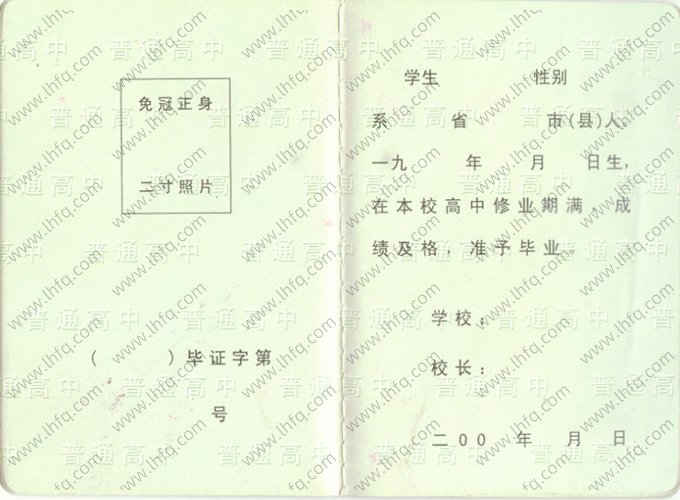 免冠正身
二寸照片
( )毕证字第
号
学生 性别
系 省 市(县)人,
一九 年 月 日生,
在本校高中修业期满,成
绩及格,准予毕业。
学校:
校长:
二00 年 月 日
普通高中
www.lhfq.com